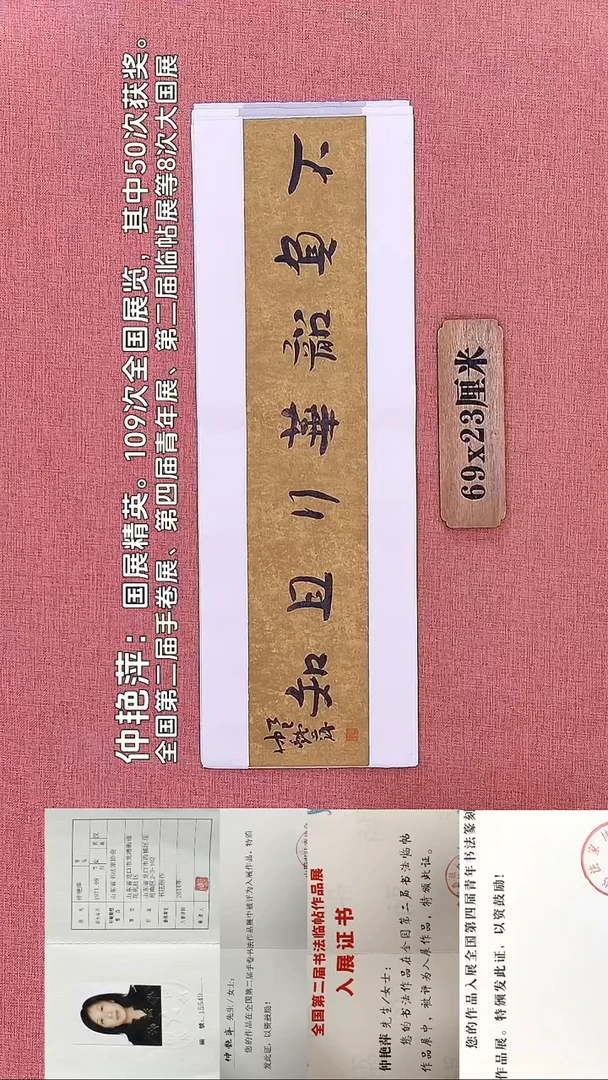 仲艳萍：国展精英。109次全国展览，其中50次获奖。
全国第二届手卷展、第四届青年展、第二届临帖展等8次大国展
不負韶華行且知
艷萍
69x23厘米
仲艳萍
1971.09
山东省书法家协会
书法创作
仲艳萍 先生／女士：
您的作品在全国第二届手卷书法作品展中被评为入展作品，特颁
发此证，以资鼓励！
全国第二届书法临帖作品展
入展证书
仲艳萍 先生/女士：
您的书法作品在全国第二届书法临帖
作品展中，被评为入展作品，特颁此证。
您的作品入展全国第四届青年书法篆刻
作品展。特颁发此证，以资鼓励！